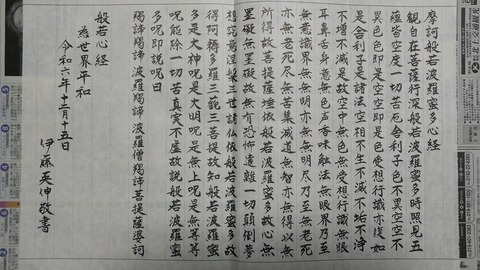 摩訶般若波羅蜜多心経
観自在菩薩行深般若波羅蜜多時照見五
蘊皆空度一切苦厄舎利子色不異空空不
異色色即是空空即是色受想行識亦復如
是舎利子是諸法空相不生不滅不垢不浄
不増不減是故空中無色無受想行識無眼
耳鼻舌身意無色声香味触法無眼界乃至
無意識界無無明亦無無明尽乃至無老死
亦無老死尽無苦集滅道無智亦無得以無
所得故菩提薩埵依般若波羅蜜多故心無
罣礙無罣礙故無有恐怖遠離一切顛倒夢
想究竟涅槃三世諸仏依般若波羅蜜多故
得阿耨多羅三藐三菩提故知般若波羅蜜
多是大神呪是大明呪是無上呪是無等等
呪能除一切苦真実不虚故説般若波羅蜜
多呪即説呪曰
羯諦羯諦 波羅羯諦 波羅僧羯諦 菩提薩婆訶
般若心経
為世界平和
令和六年十二月十五日
伊藤英伸敬書